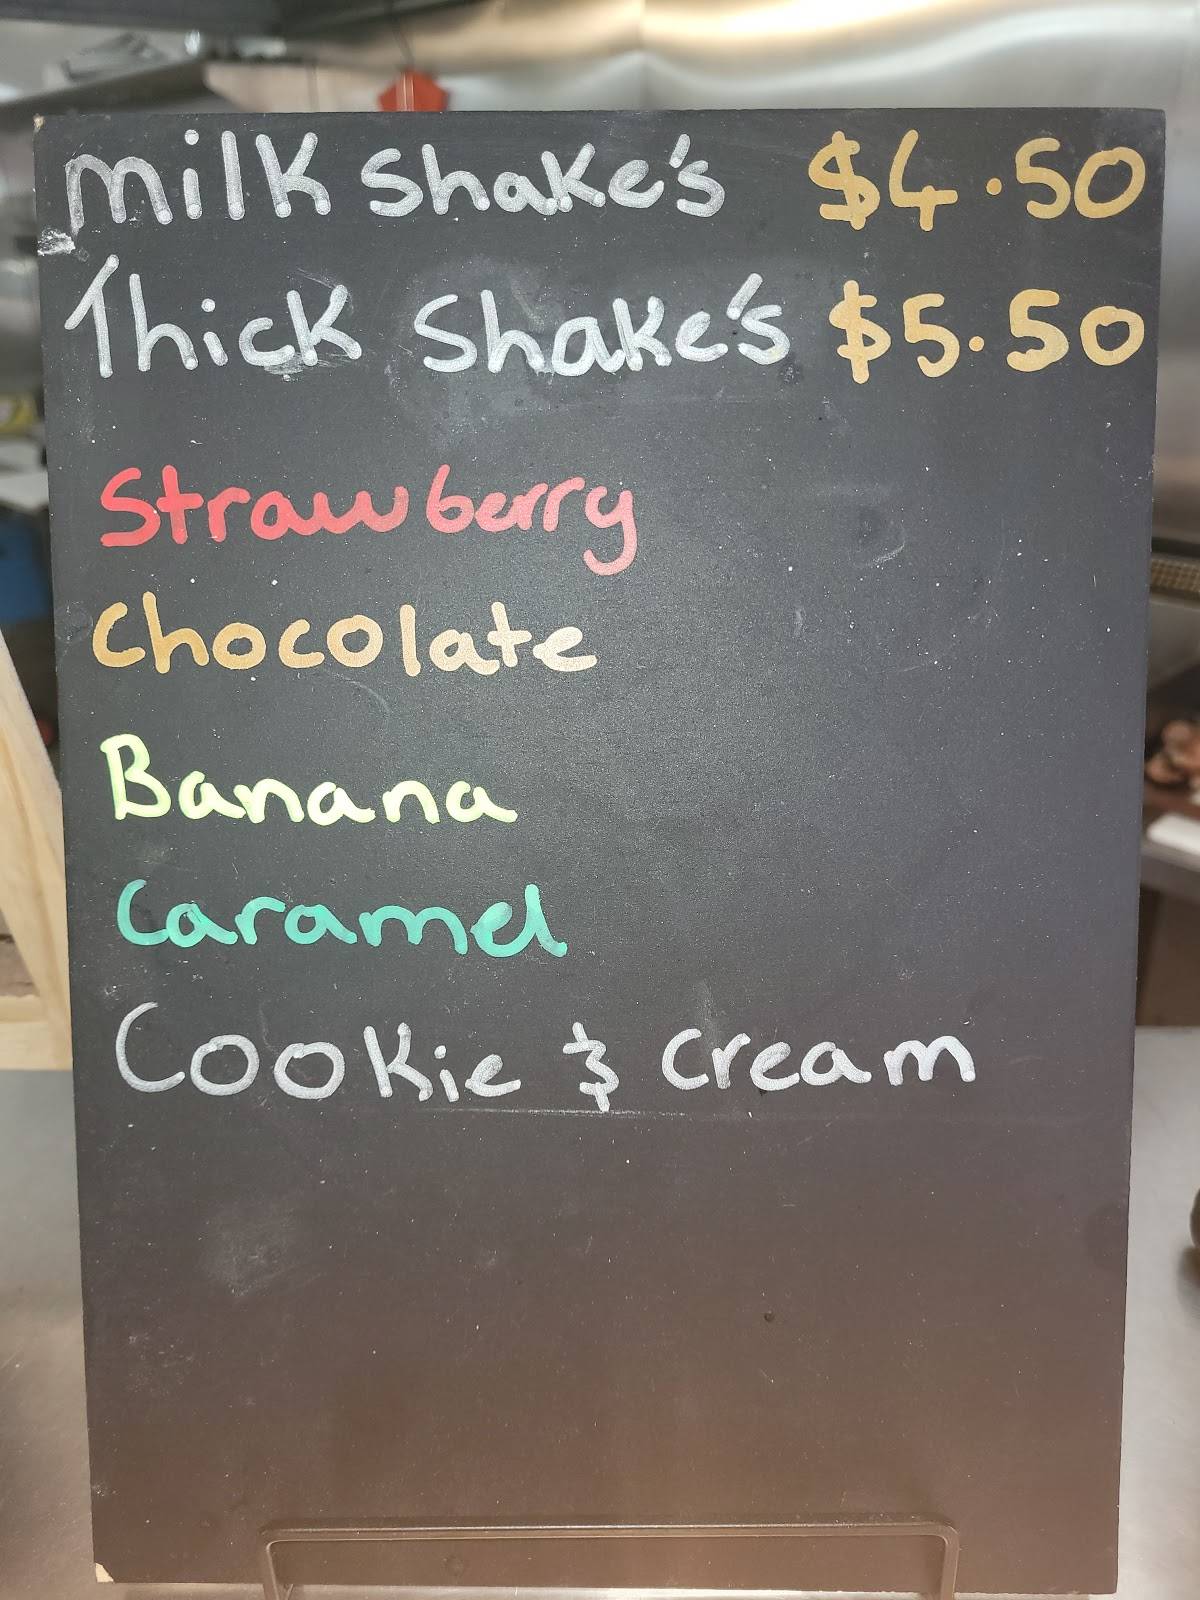 Milk Shake's $4.50
Thick Shake's $5.50
Strawberry
Chocolate
Banana
Caramel
Cookie & Cream